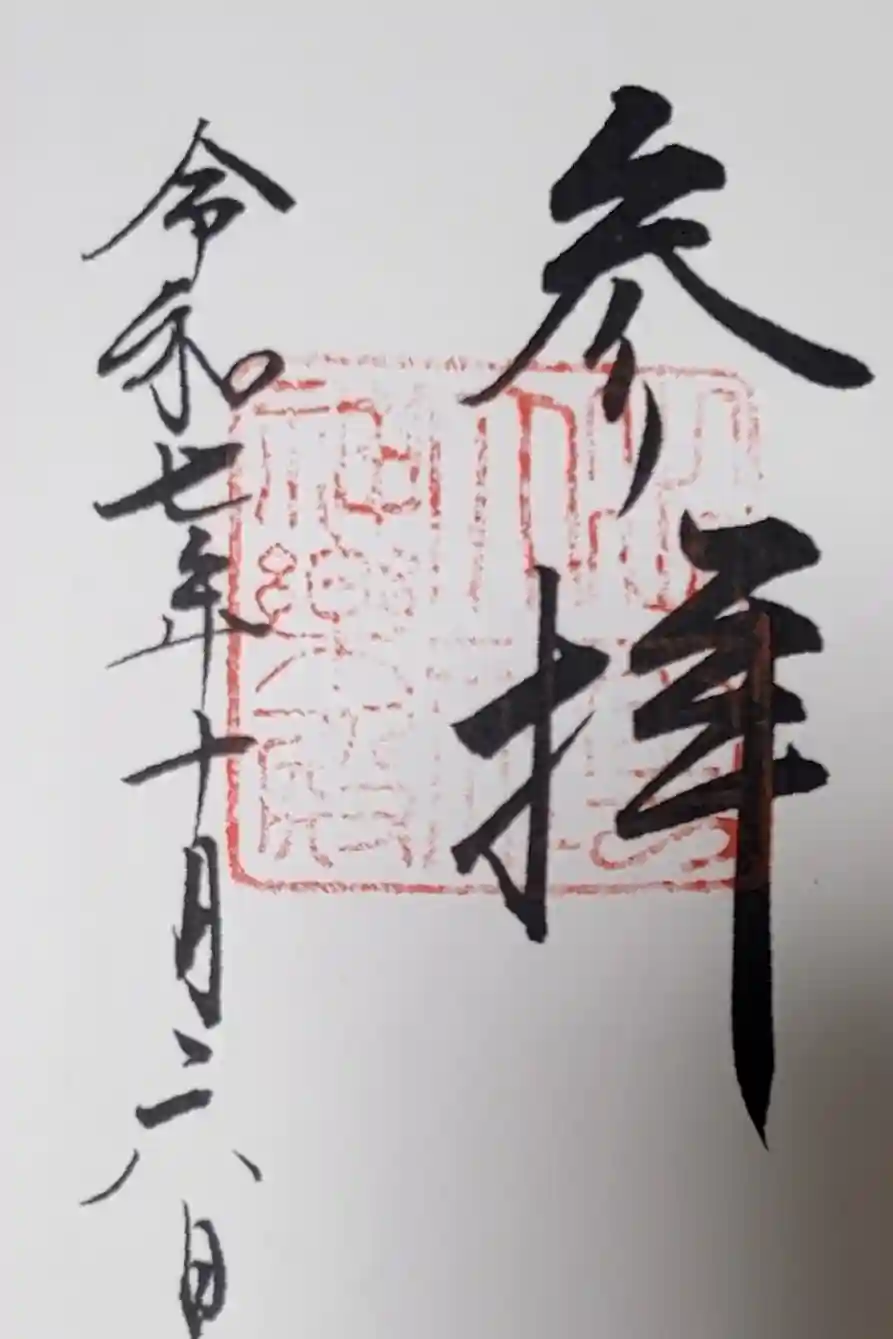 参拝
令和七年十月二八日